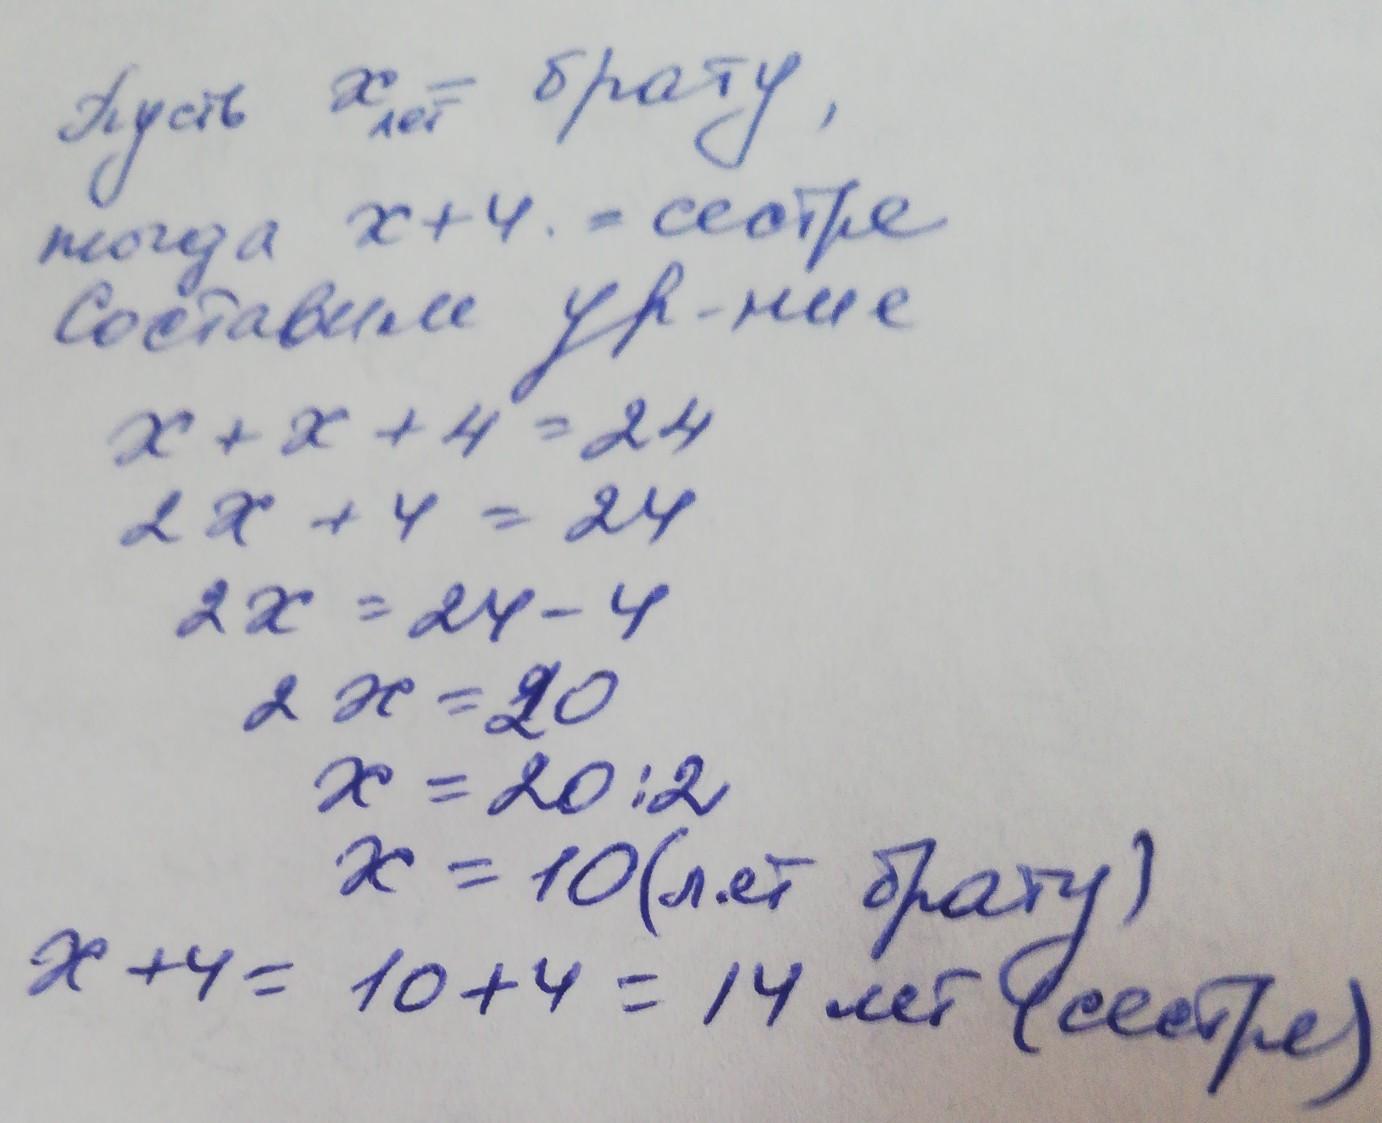 Пусть x лет = брату,
тогда x+4. = сестре
Составим ур-ние
x + x + 4 = 24
2x + 4 = 24
2x = 24 - 4
2x = 20
x = 20:2
x = 10 (лет брату)
x + 4 = 10 + 4 = 14 лет (сестре)